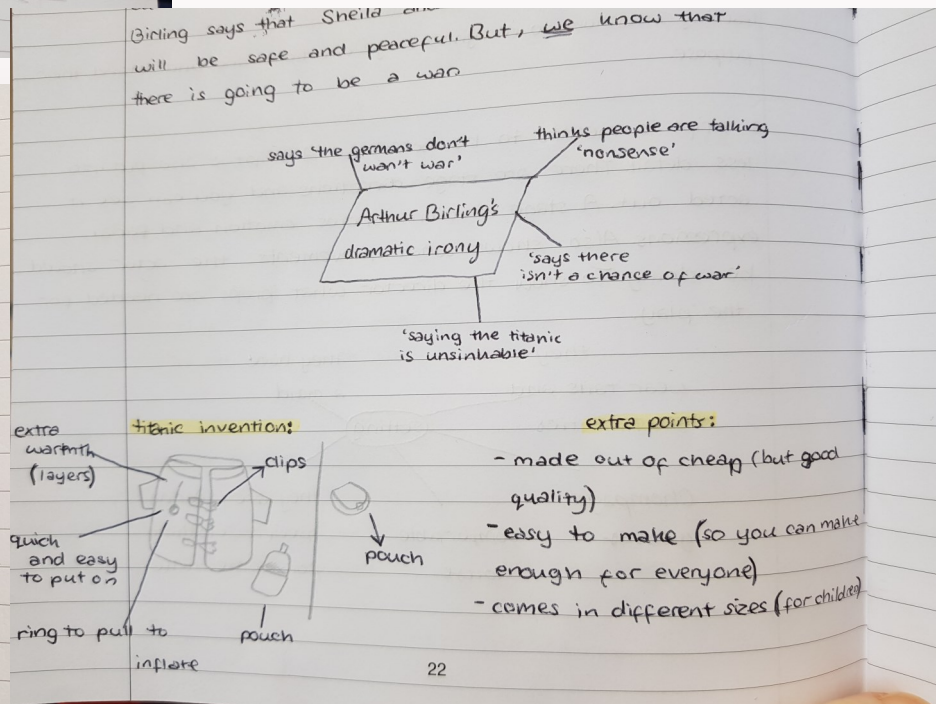 Birling says that Sheila and
will be safe and peaceful. But, we know that
there is going to be a war
says 'the germans don't
won't war'
thinks people are talking
'nonsense'
Arthur Birling's
dramatic irony
'says there
isn't a chance of war'
'saying the titanic
is unsinkable'
titanic invention:
extra
warmth
(layers)
clips
quick
and easy
to put on
ring to pull to
inflate
pouch
pouch
extra points:
- made out of cheap (but good
quality)
- easy to make (so you can make
enough for everyone)
- comes in different sizes (for children)
22